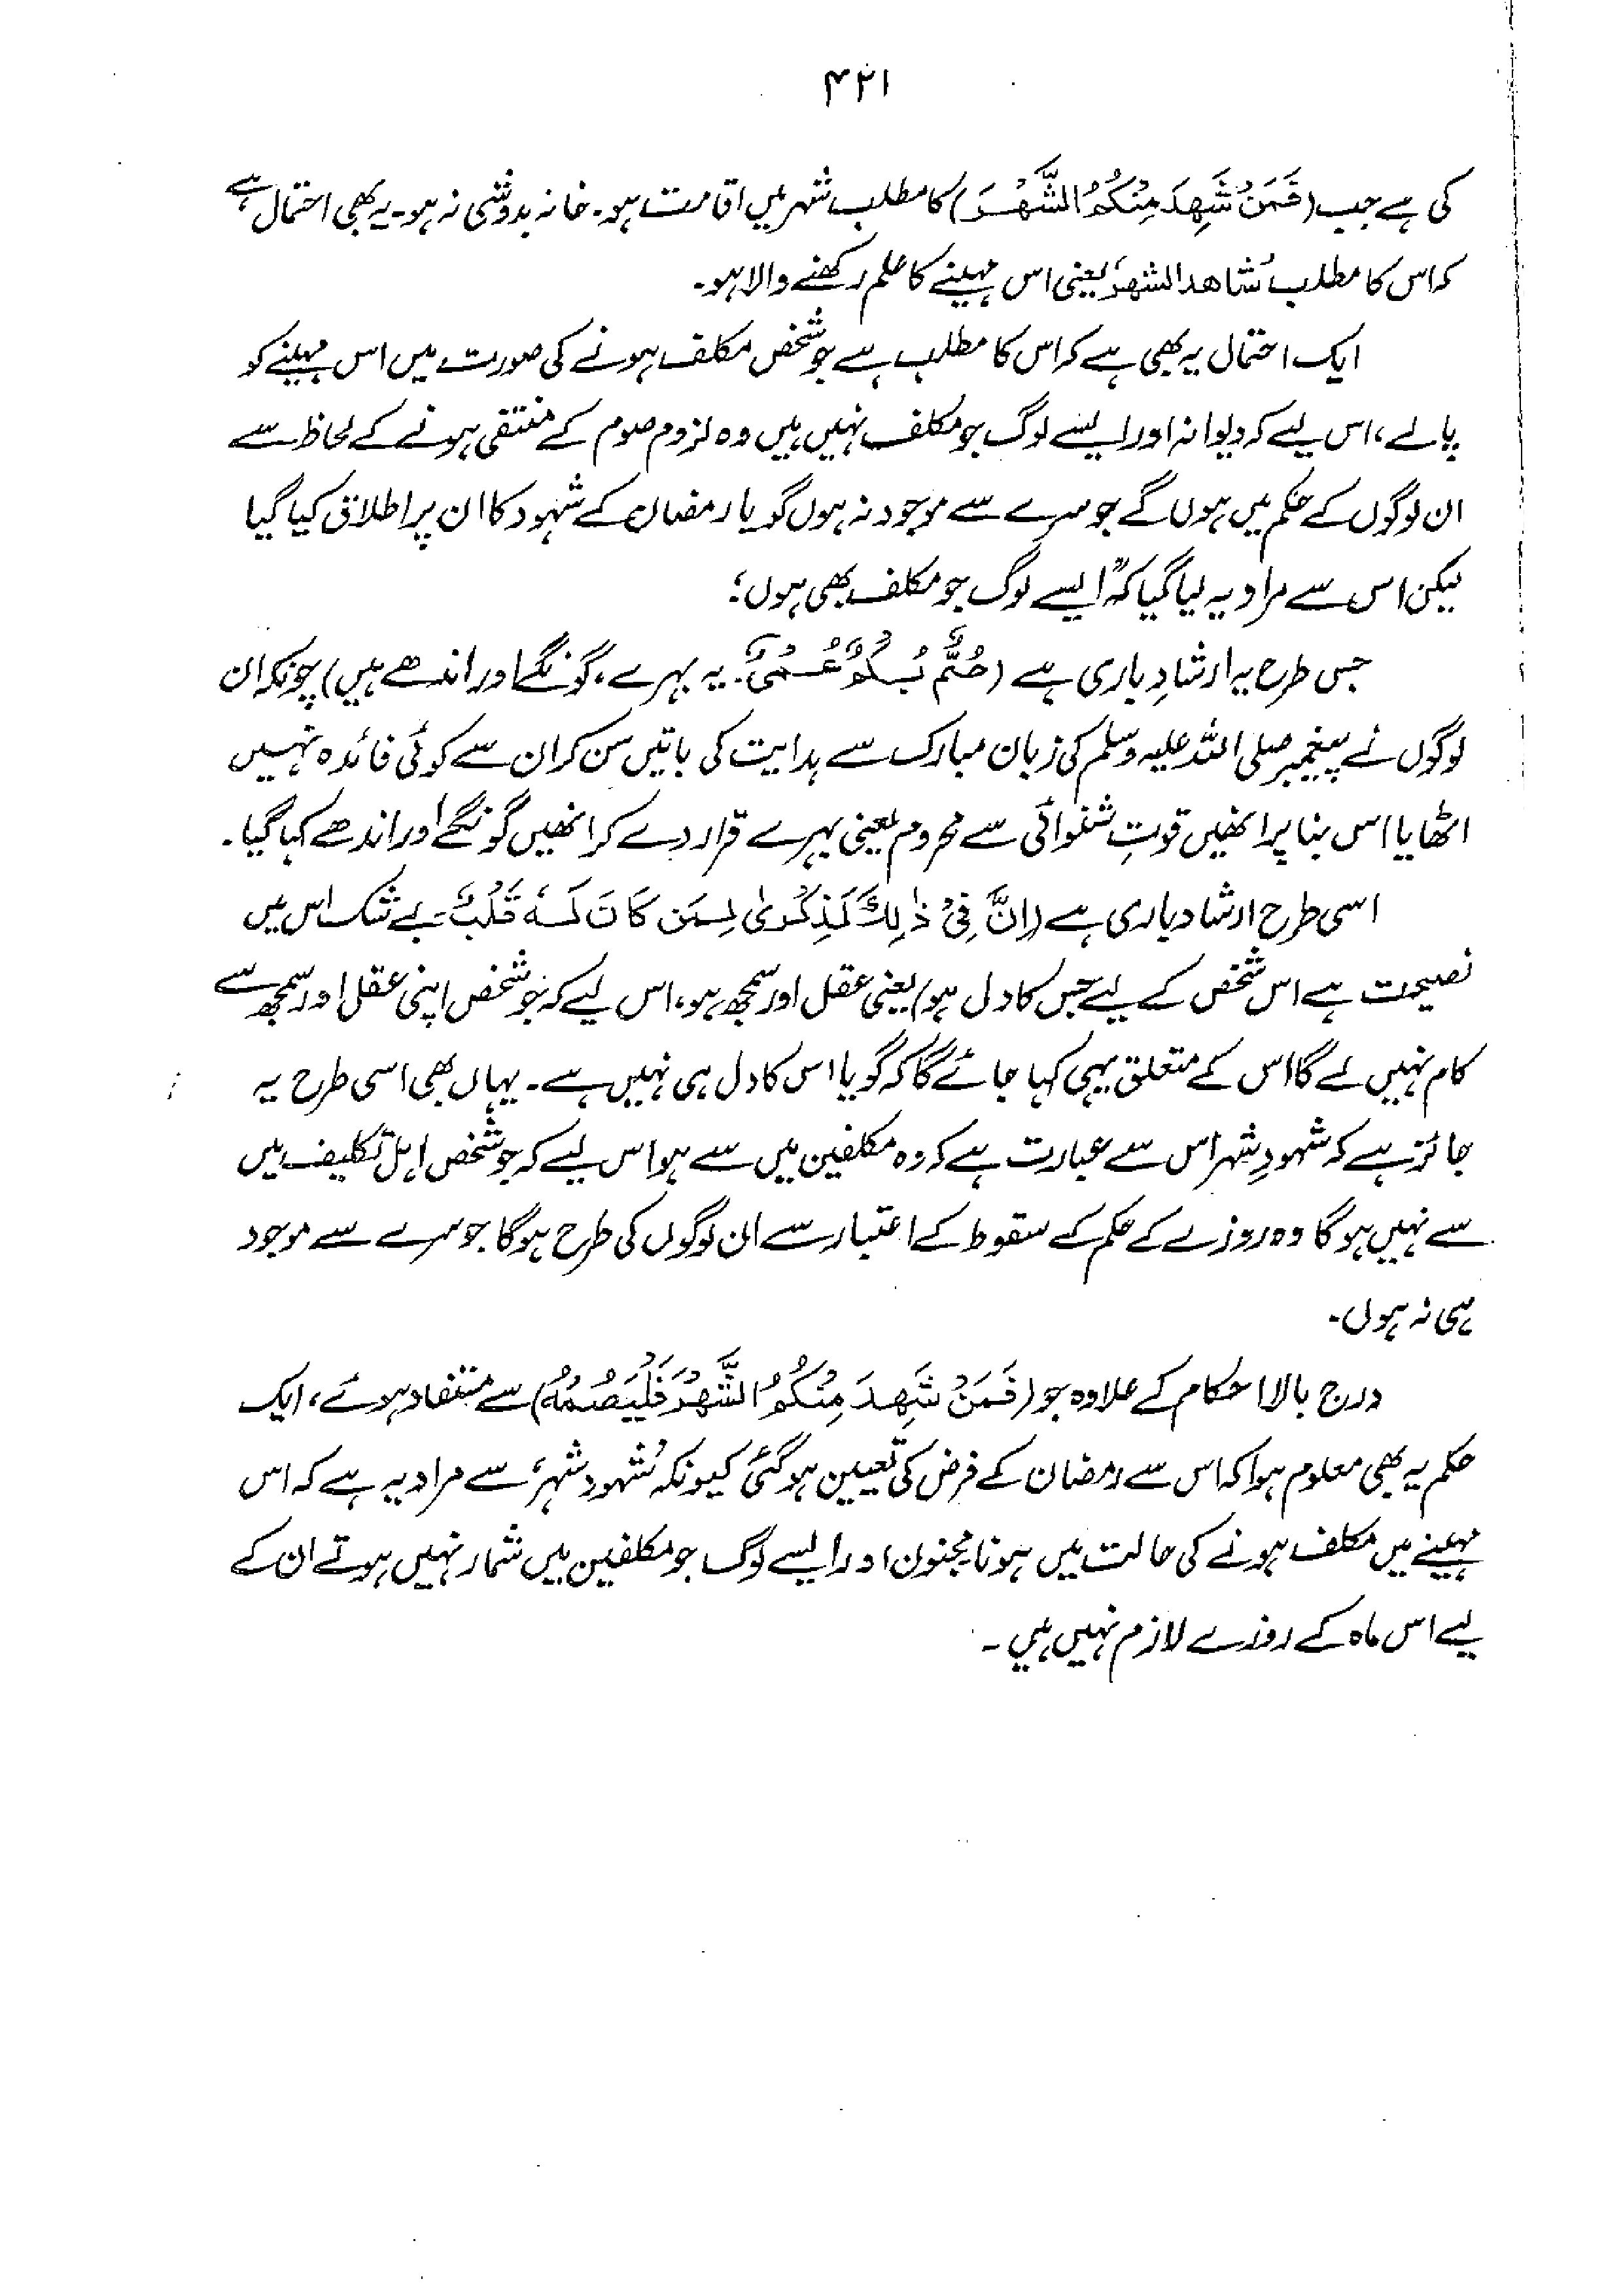 ۴۲۱
کی ہے جب (فَمَنْ شَهِدَ مِنْكُمُ الشَّهْرَ) کا مطلب شہر میں اقامت ہو۔ خانہ بدوشی نہ ہو۔ یہ بھی احتمال ہے
کہ اس کا مطلب 'شاهد الشهر' یعنی اس مہینے کا علم رکھنے والا ہو۔
ایک احتمال یہ بھی ہے کہ اس کا مطلب ہے جو شخص مکلف ہونے کی صورت میں اس مہینے کو
پالے، اس لیے کہ دیوانہ اور ایسے لوگ جو مکلف نہیں ہیں وہ لزوم صوم کے منتفی ہونے کے لحاظ سے
ان لوگوں کے حکم میں ہوں گے جو سرے سے موجود نہ ہوں گویا رمضان کے شہود کا ان پر اطلاق کیا گیا
لیکن اس سے مراد یہ لیا گیا کہ "ایسے لوگ جو مکلف بھی ہوں؛
جس طرح یہ ارشادِ باری ہے (صُمٌّ بُكْمٌ عُمْىٌ۔ یہ بہرے، گونگے اور اندھے ہیں) چونکہ ان
لوگوں نے پیغمبر صلی اللہ علیہ وسلم کی زبان مبارک سے ہدایت کی باتیں سن کر ان سے کوئی فائدہ نہیں
اٹھایا اس بنا پر انھیں قوتِ شنوائی سے محروم یعنی بہرے قرار دے کر انھیں گونگے اور اندھے کہا گیا۔
اسی طرح ارشاد باری ہے (اِنَّ فِیْ ذٰلِكَ لَذِكْرٰى لِمَنْ كَانَ لَهٗ قَلْبٌ۔ بے شک اس میں
نصیحت ہے اس شخص کے لیے جس کا دل ہو) یعنی عقل اور سمجھ ہو، اس لیے کہ جو شخص اپنی عقل اور سمجھ سے
کام نہیں لے گا اس کے متعلق یہی کہا جائے گا کہ گویا اس کا دل ہی نہیں ہے۔ یہاں بھی اسی طرح یہ
جائز ہے کہ شہودِ شہر اس سے عبارت ہے کہ وہ مکلفین میں سے ہو اس لیے کہ جو شخص اہل تکلیف میں
سے نہیں ہو گا وہ روزے کے حکم کے سقوط کے اعتبار سے ان لوگوں کی طرح ہو گا جو سرے سے موجود
ہی نہ ہوں۔
درج بالا احکام کے علاوہ جو (فَمَنْ شَهِدَ مِنْكُمُ الشَّهْرَ فَلْيَصُمْهُ) سے مستفاد ہوئے، ایک
حکم یہ بھی معلوم ہوا کہ اس سے رمضان کے فرض کی تعیین ہو گئی کیونکہ 'شہود شہر' سے مراد یہ ہے کہ اس
مہینے میں مکلف ہونے کی حالت میں ہونا مجنون اور ایسے لوگ جو مکلفین میں شمار نہیں ہوتے ان کے
لیے اس ماہ کے روزے لازم نہیں ہیں۔